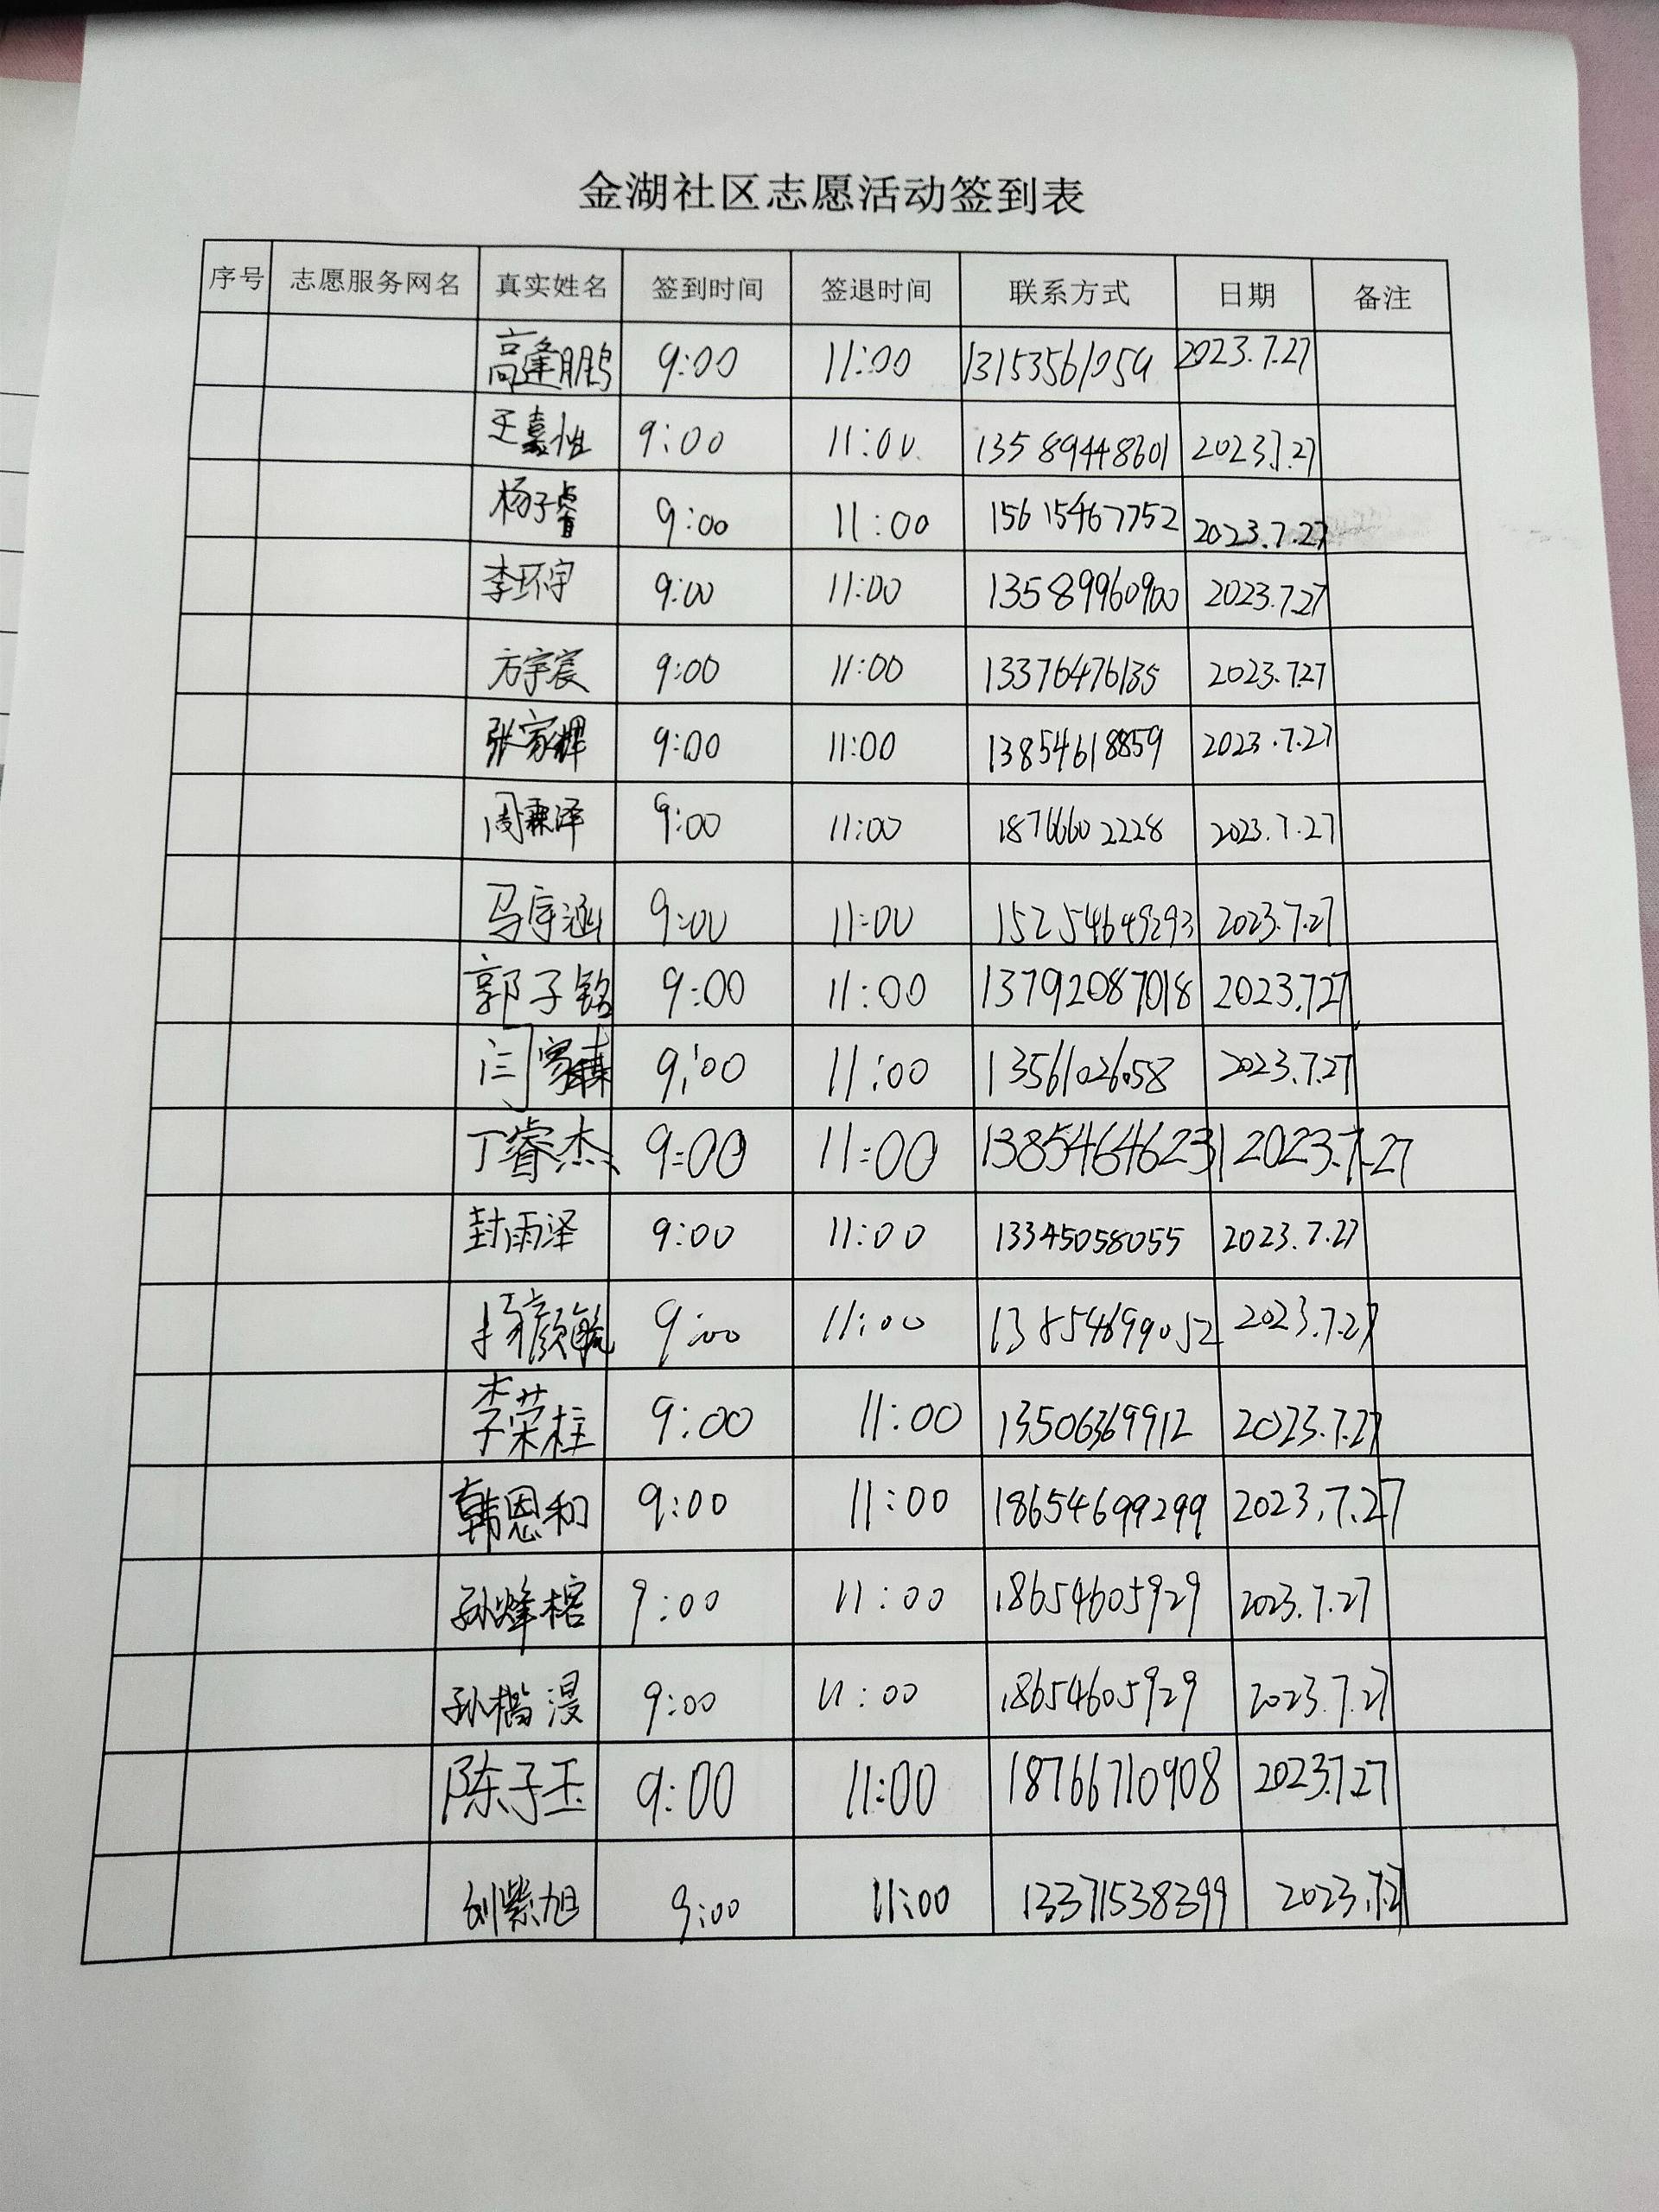 金湖社区志愿活动签到表
序号 志愿服务网名 真实姓名 签到时间 签退时间 联系方式 日期 备注
高逢鹏 9:00 11:00 13153561059 2023.7.27
王嘉怡 9:00 11:00 13589448601 2023.7.27
杨子睿 9:00 11:00 15615467752 2023.7.27
李环宇 9:00 11:00 13589960900 2023.7.27
方宇宸 9:00 11:00 13376476135 2023.7.27
张家辉 9:00 11:00 13854618859 2023.7.27
周霖泽 9:00 11:00 18766602228 2023.7.27
马宇涵 9:00 11:00 15254649293 2023.7.27
郭子铭 9:00 11:00 13792087018 2023.7.27
9:00 11:00 13561026058 2023.7.27
丁睿杰 9:00 11:00 13854646231 2023.7.27
封雨泽 9:00 11:00 13345058055 2023.7.27
9:00 11:00 13854699052 2023.7.27
李荣柱 9:00 11:00 13506369912 2023.7.27
韩恩和 9:00 11:00 18654699299 2023.7.27
孙烽榕 9:00 11:00 18654605929 2023.7.27
孙 9:00 11:00 18654605929 2023.7.27
陈子玉 9:00 11:00 18766710908 2023.7.27
刘紫旭 9:00 11:00 13371538399 2023.7.27